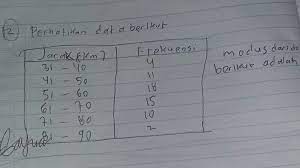 2) Perhatikan data berikut
Jarak (km) Frekuensi
31 - 40 4
41 - 50 11
51 - 60 18
61 - 70 15
71 - 80 10
81 - 90 2
modus dari
berikut adalah